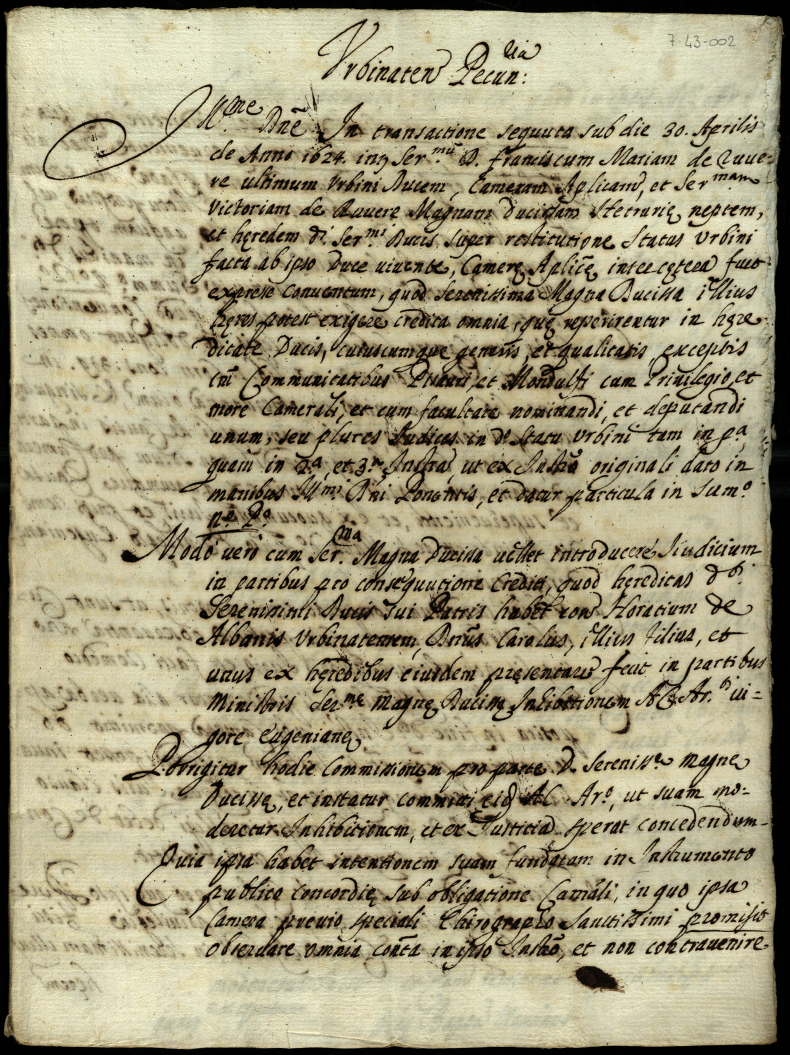 7-43-002
Urbinaten Pecun:ria
Ill.me Dnē In transactione sequuta sub die 30. Aprilis
de Anno 1624. inter Ser.mū D. Franciscum Mariam de Ruue-
re ultimum Urbini Ducem, Cameram Aplicam, et Ser.mam
Victoriam de Ruuere Magnam Ducissam Hetrurię neptem,
et hęredem d.i Ser.mi Ducis, super restitutione Status Urbini
facta ab ipso Duce uiuente, Camerę Aplicę, inter cętera fuit
expresse conuentum, quod Serenissima Magna Ducissa illius
hęres potest exigere credita omnia, quę reperirentur in hęre
ditate Ducis, cuiuscumque generis, et qualitatis, exceptis
tm̄ Communitatibus Pisauri, et Mondulfi cum Priuilegio, et
more Camerali, et cum facultate nominandi, et deputandi
unum, seu plures Iudices in d.o Statu Urbini tam in p.a
quam in 2.a, et 3.a Instra, ut ex Instro originali dato in
manibus Ill.mi Dni Ponentis, et datur particula in Sum.o
n.o P.o
Modo uero cum Ser.ma Magna Ducissa uellet introducere Iudicium
in partibus pro consequutione Crediti, quod hęreditas d.i
Serenissimi Ducis sui Patris habet con Horatium de
Albanis Urbinatensem, Dnūs Carolus, illius filius, et
unus ex hęredibus eiusdem pręsentare fecit in partibus
Ministris Ser.me Magnę Ducissę Inhibitionem A.C. Ar.ri ui-
gore Eugenianę
Porrigitur hodie Commissionem pro parte D. Sereniss.e Magnę
Ducissę, et instatur committi eid. A.C. Ar.o, ut suam mo-
deretur Inhibitionem, et ex Iustitia sperat concedendum-
Quia ipsa habet intentionem suam fundatam in Instrumento
publico Concordię sub obligatione Camāli, in quo ipsa
Camera pręuio speciali Chirographo Sanctissimi promisit
obseruare omnia conta in ipso Instro, et non contrauenire-